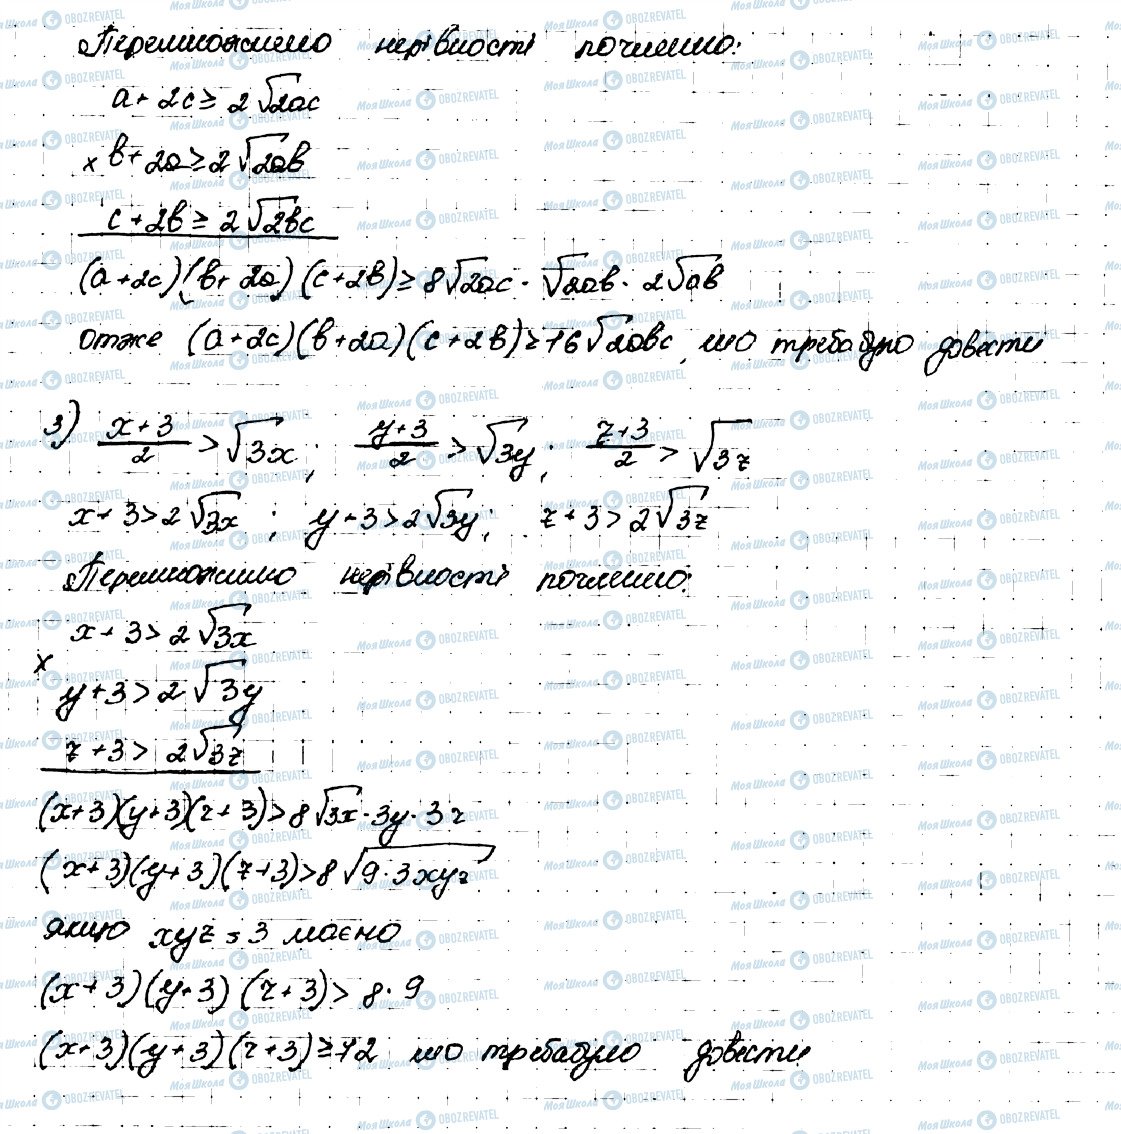 Перемножимо нерівності почленно:
a + 2c ≥ 2√2ac
x в + 2a ≥ 2√2aв
c + 2в ≥ 2√2вc
(a + 2c)(в + 2a)(c + 2в) ≥ 8√2ac · √2aв · 2√aв
отже (a + 2c)(в + 2a)(c + 2в) ≥ 16√2aвc, що треба було довести
3) x + 3 / 2 > √3x ; y + 3 / 2 > √3y ; z + 3 / 2 > √3z
x + 3 > 2√3x ; y + 3 > 2√3y ; z + 3 > 2√3z
Перемножимо нерівності почленно:
x + 3 > 2√3x
x
y + 3 > 2√3y
z + 3 > 2√3z
(x + 3)(y + 3)(z + 3) > 8√3x · 3y · 3z
(x + 3)(y + 3)(z + 3) > 8√9 · 3xyz
якщо xyz = 3 маємо
(x + 3)(y + 3)(z + 3) > 8 · 9
(x + 3)(y + 3)(z + 3) ≥ 72 що треба було довести
МояШкола OBOZREVATEL